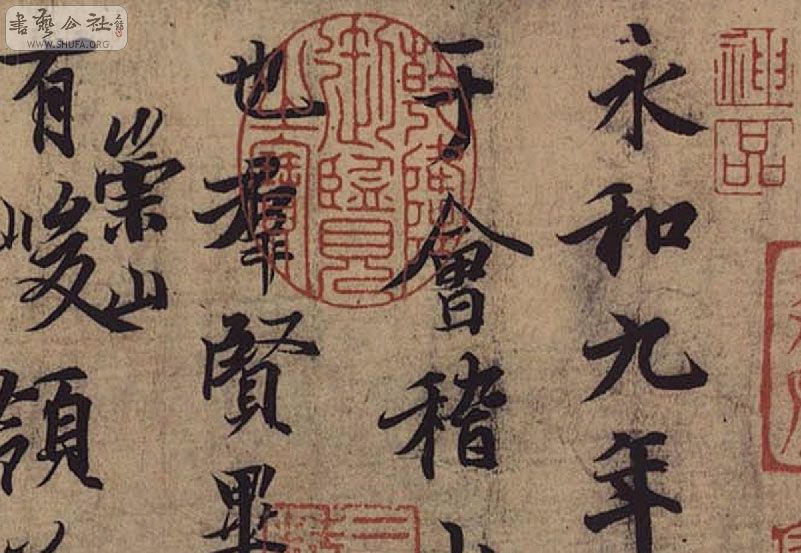 神品
永和九年
于會稽
也羣賢畢
崇山
有峻領
乾隆御覽之寶
書藝公社
www.SHUFA.ORG